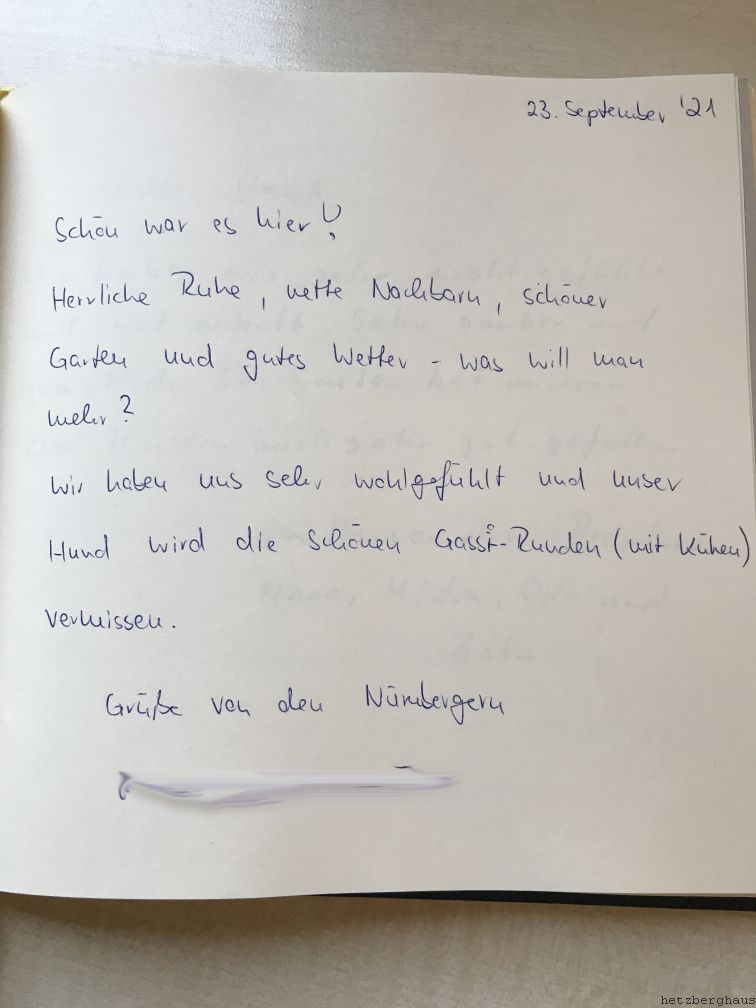 23. September '21
Schön war es hier!
Herrliche Ruhe, nette Nachbarn, schöner
Garten und gutes Wetter - was will man
mehr?
Wir haben uns sehr wohlgefühlt und unser
Hund wird die schönen Gassi-Runden (mit Kühen)
vermissen.
Grüße von den Nürnbergern
hetzberghaus